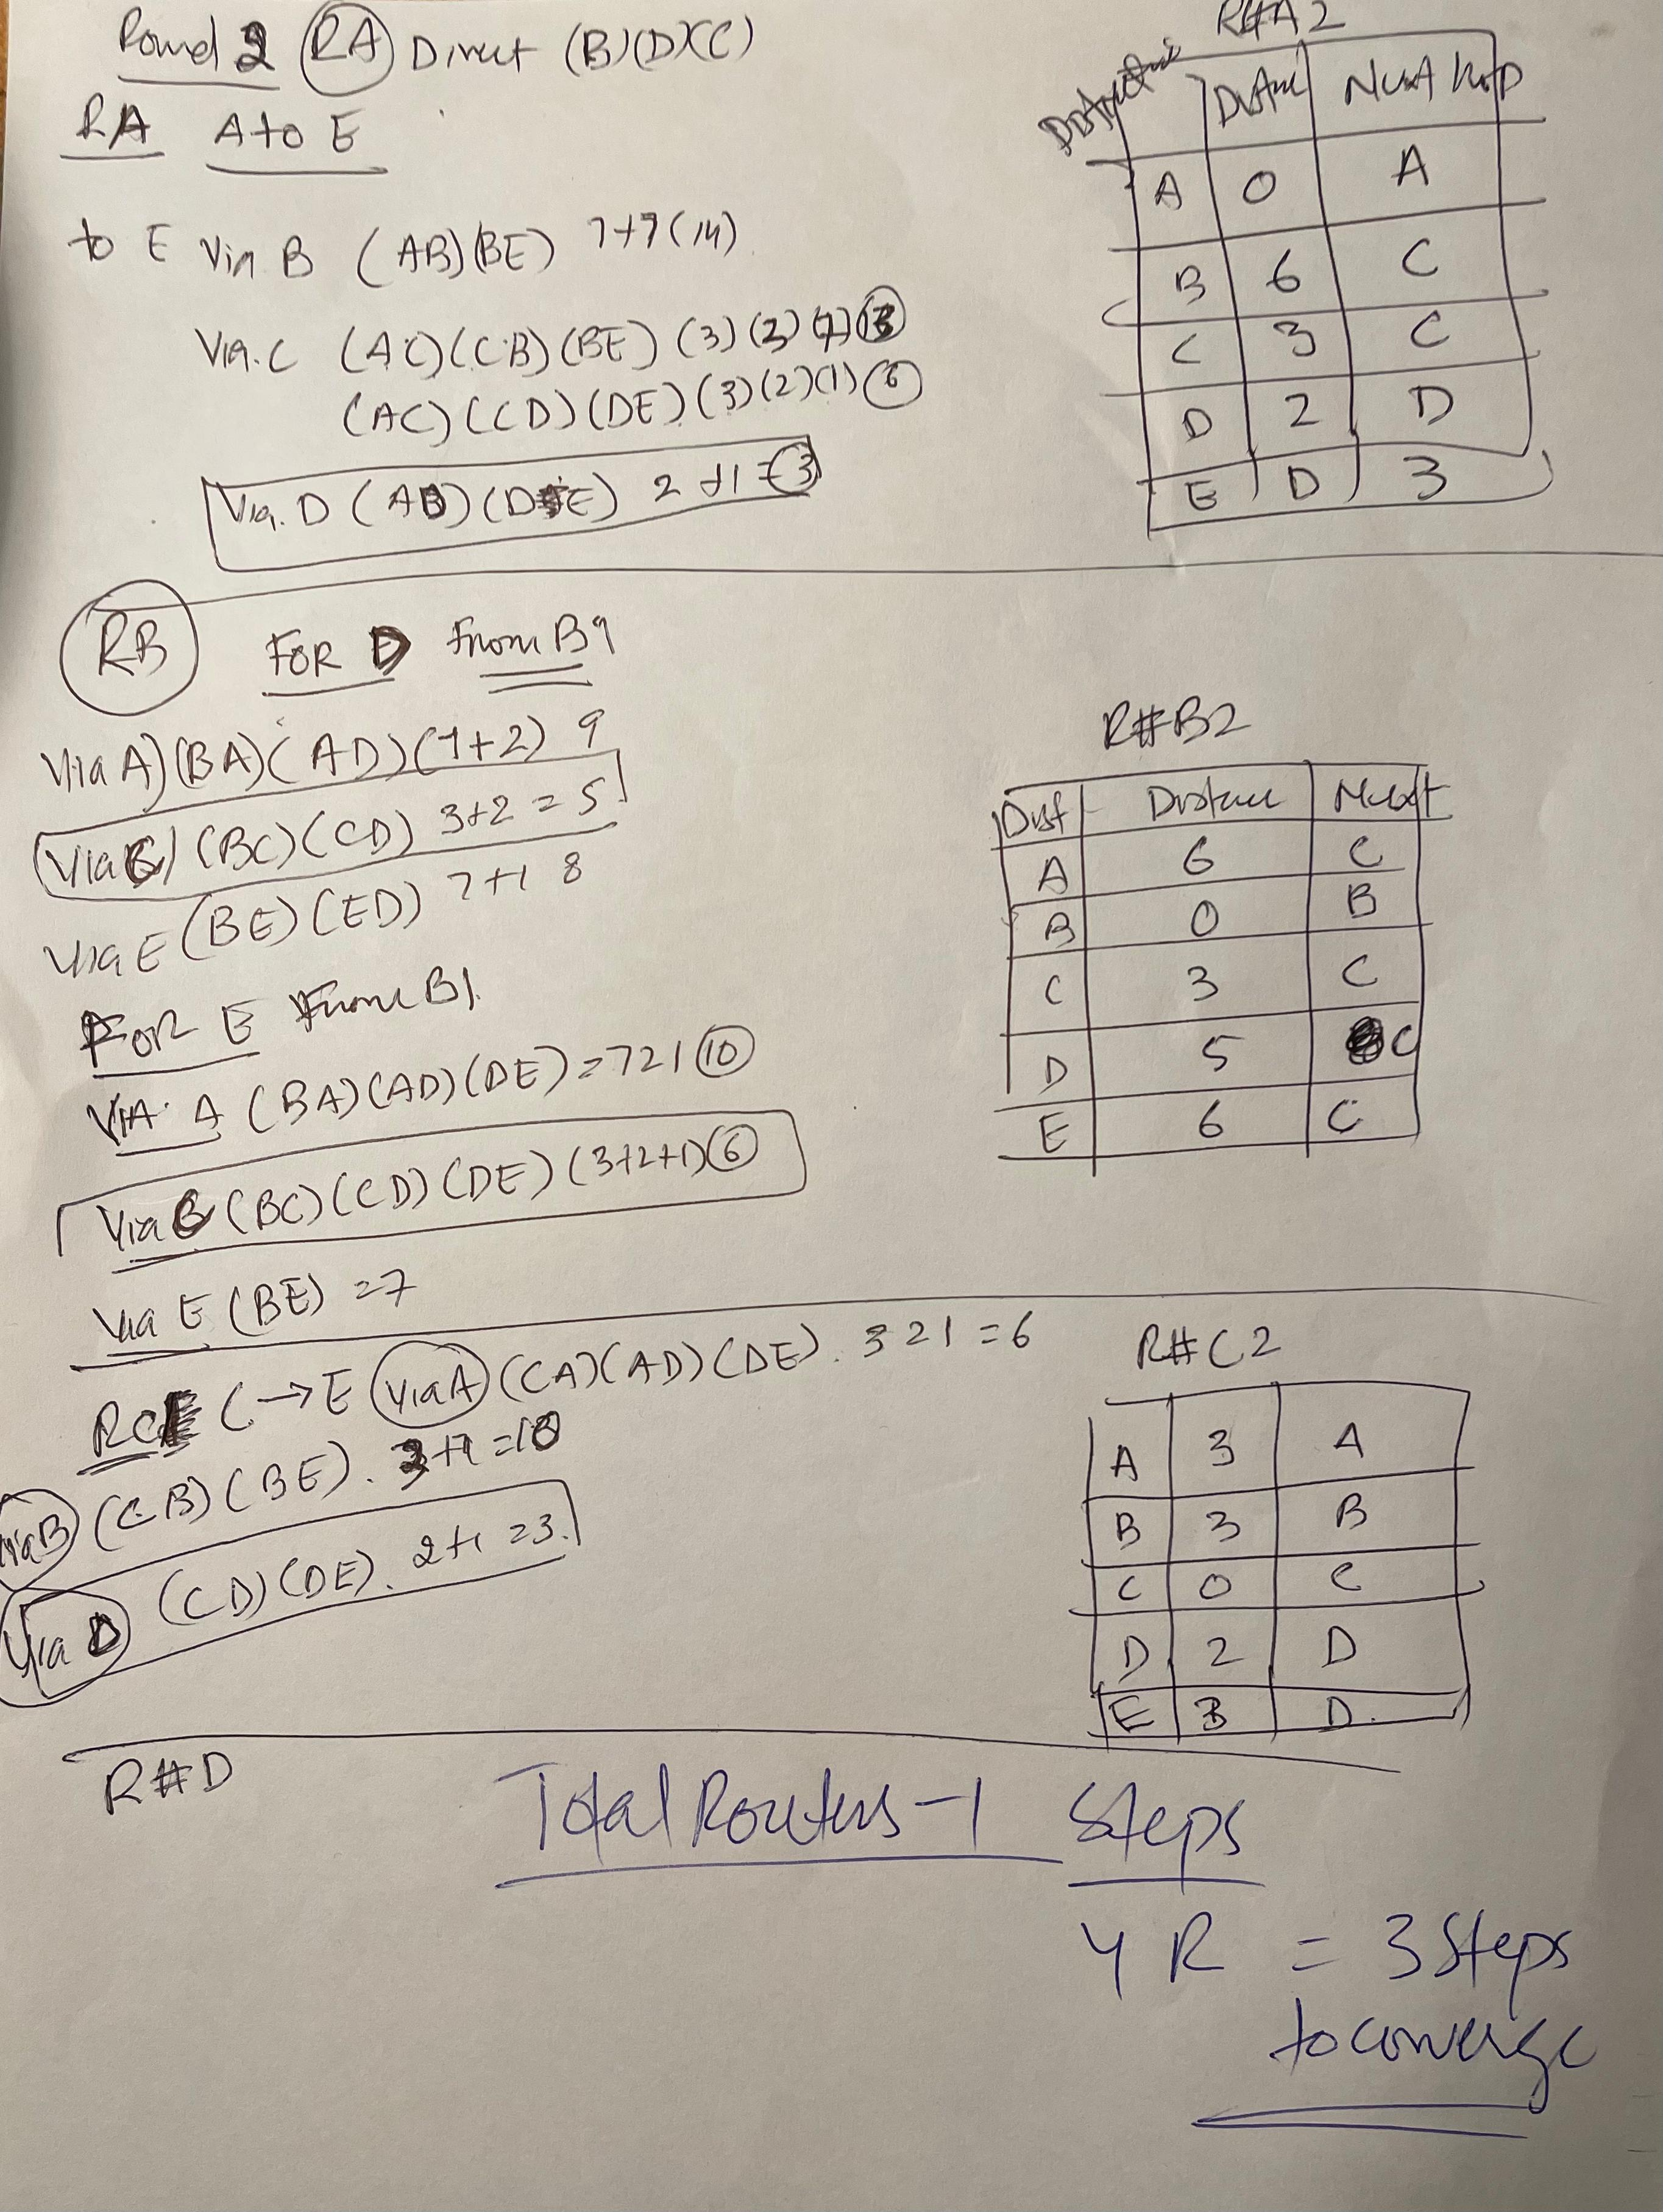 Round 2 (RA) Direct (B)(D)(C)
RA A to E
to E Via B (AB)(BE) 7+7(14)
Via. C (AC)(CB)(BE) (3)(3)(7)(13)
(AC)(CD)(DE)(3)(2)(1)(6)
Via. D (AD)(DE) 2+1=3
R#A2
Distance Next hop
A 0 A
B 6 C
C 3 C
D 2 D
E D 3
RB FOR D From B
Via A)(BA)(AD)(7+2) 9
Via C) (BC)(CD) 3+2=5
Via E (BE)(ED) 7+1 8
FOR E From B
VIA A (BA)(AD)(DE)=721 (10)
Via C (BC)(CD)(DE)(3+2+1)(6)
Via E (BE) =7
R#B2
Dist Distance Next
A 6 C
B 0 B
C 3 C
D 5 C
E 6 C
RC C→E Via A (CA)(AD)(DE). 3 2 1 = 6
Via B (CB)(BE). 3+7=10
Via D (CD)(DE). 2+1=3.
R#C2
A 3 A
B 3 B
C 0 C
D 2 D
E 3 D.
R#D
Total Routers-1 Steps
4 R = 3 Steps
to converge